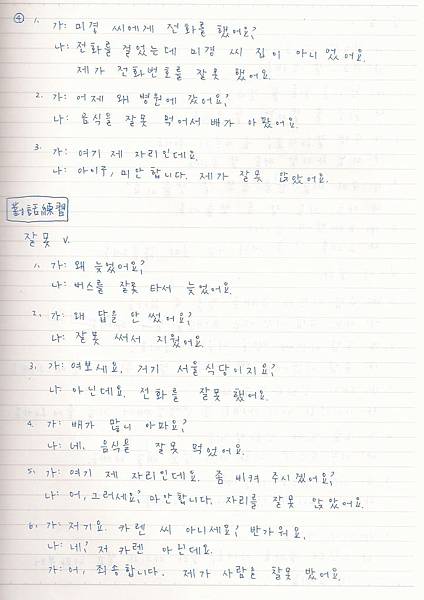 ④ 1. 가: 미경 씨에게 전화를 했어요?
나: 전화를 걸었는데 미경 씨 집이 아니었어요.
제가 전화번호를 잘못 했어요.
2. 가: 어제 왜 병원에 갔어요?
나: 음식을 잘못 먹어서 배가 아팠어요.
3. 가: 여기 제 자리인데요.
나: 아이구, 미안합니다. 제가 잘못 앉았어요.
對話練習
잘못 V.
1. 가: 왜 늦었어요?
나: 버스를 잘못 타서 늦었어요.
2. 가: 왜 답을 안 썼어요?
나: 잘못 써서 지웠어요.
3. 가: 여보세요, 거기 서울식당이지요?
나: 아닌데요. 전화를 잘못 했어요.
4. 가: 배가 많이 아파요?
나: 네, 음식을 잘못 먹었어요.
5. 가: 여기 제 자리인데요. 좀 비켜 주시겠어요?
나: 어, 그러세요? 미안합니다. 자리를 잘못 앉았어요.
6. 가: 저기요. 카렌 씨 아니세요? 반가워요.
나: 네? 저 카렌 아닌데요.
가: 어, 죄송합니다. 제가 사람을 잘못 봤어요.